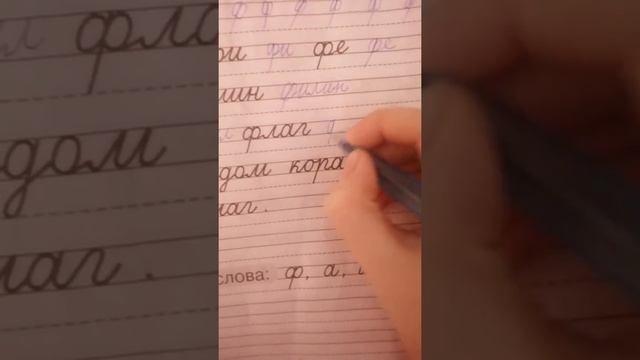 ф ф ф ф ф
фи фе фе
филин
флаг
дом кора
лаг.
слова: ф, а,